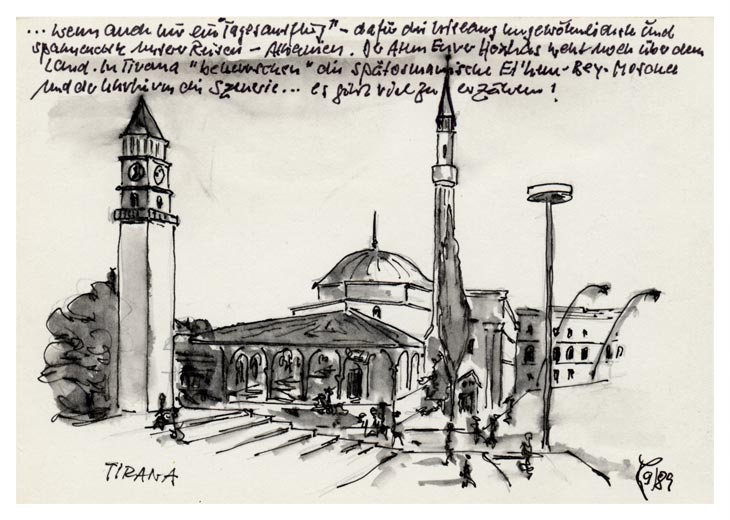 ... wenn auch nur ein "Tagesausflug" – dafür die bislang ungewöhnlichste und
spannendste unserer Reisen – Albanien. Der Atem Enver Hoxhas weht noch über dem
Land. In Tirana "beherrschen" die spätosmanische Et'hem-Bey-Moschee
und der Uhrturm die Szenerie... es gibt viel zu erzählen!
TIRANA
9/89